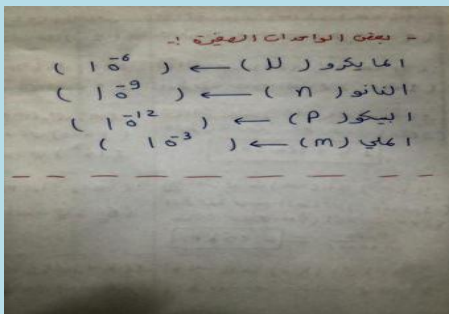 - بعض الواحدات الصغيرة :-
المايكرو (µ) ← (10⁻⁶)
النانو (n) ← (10⁻⁹)
البيكو (P) ← (10⁻¹²)
الملي (m) ← (10⁻³)